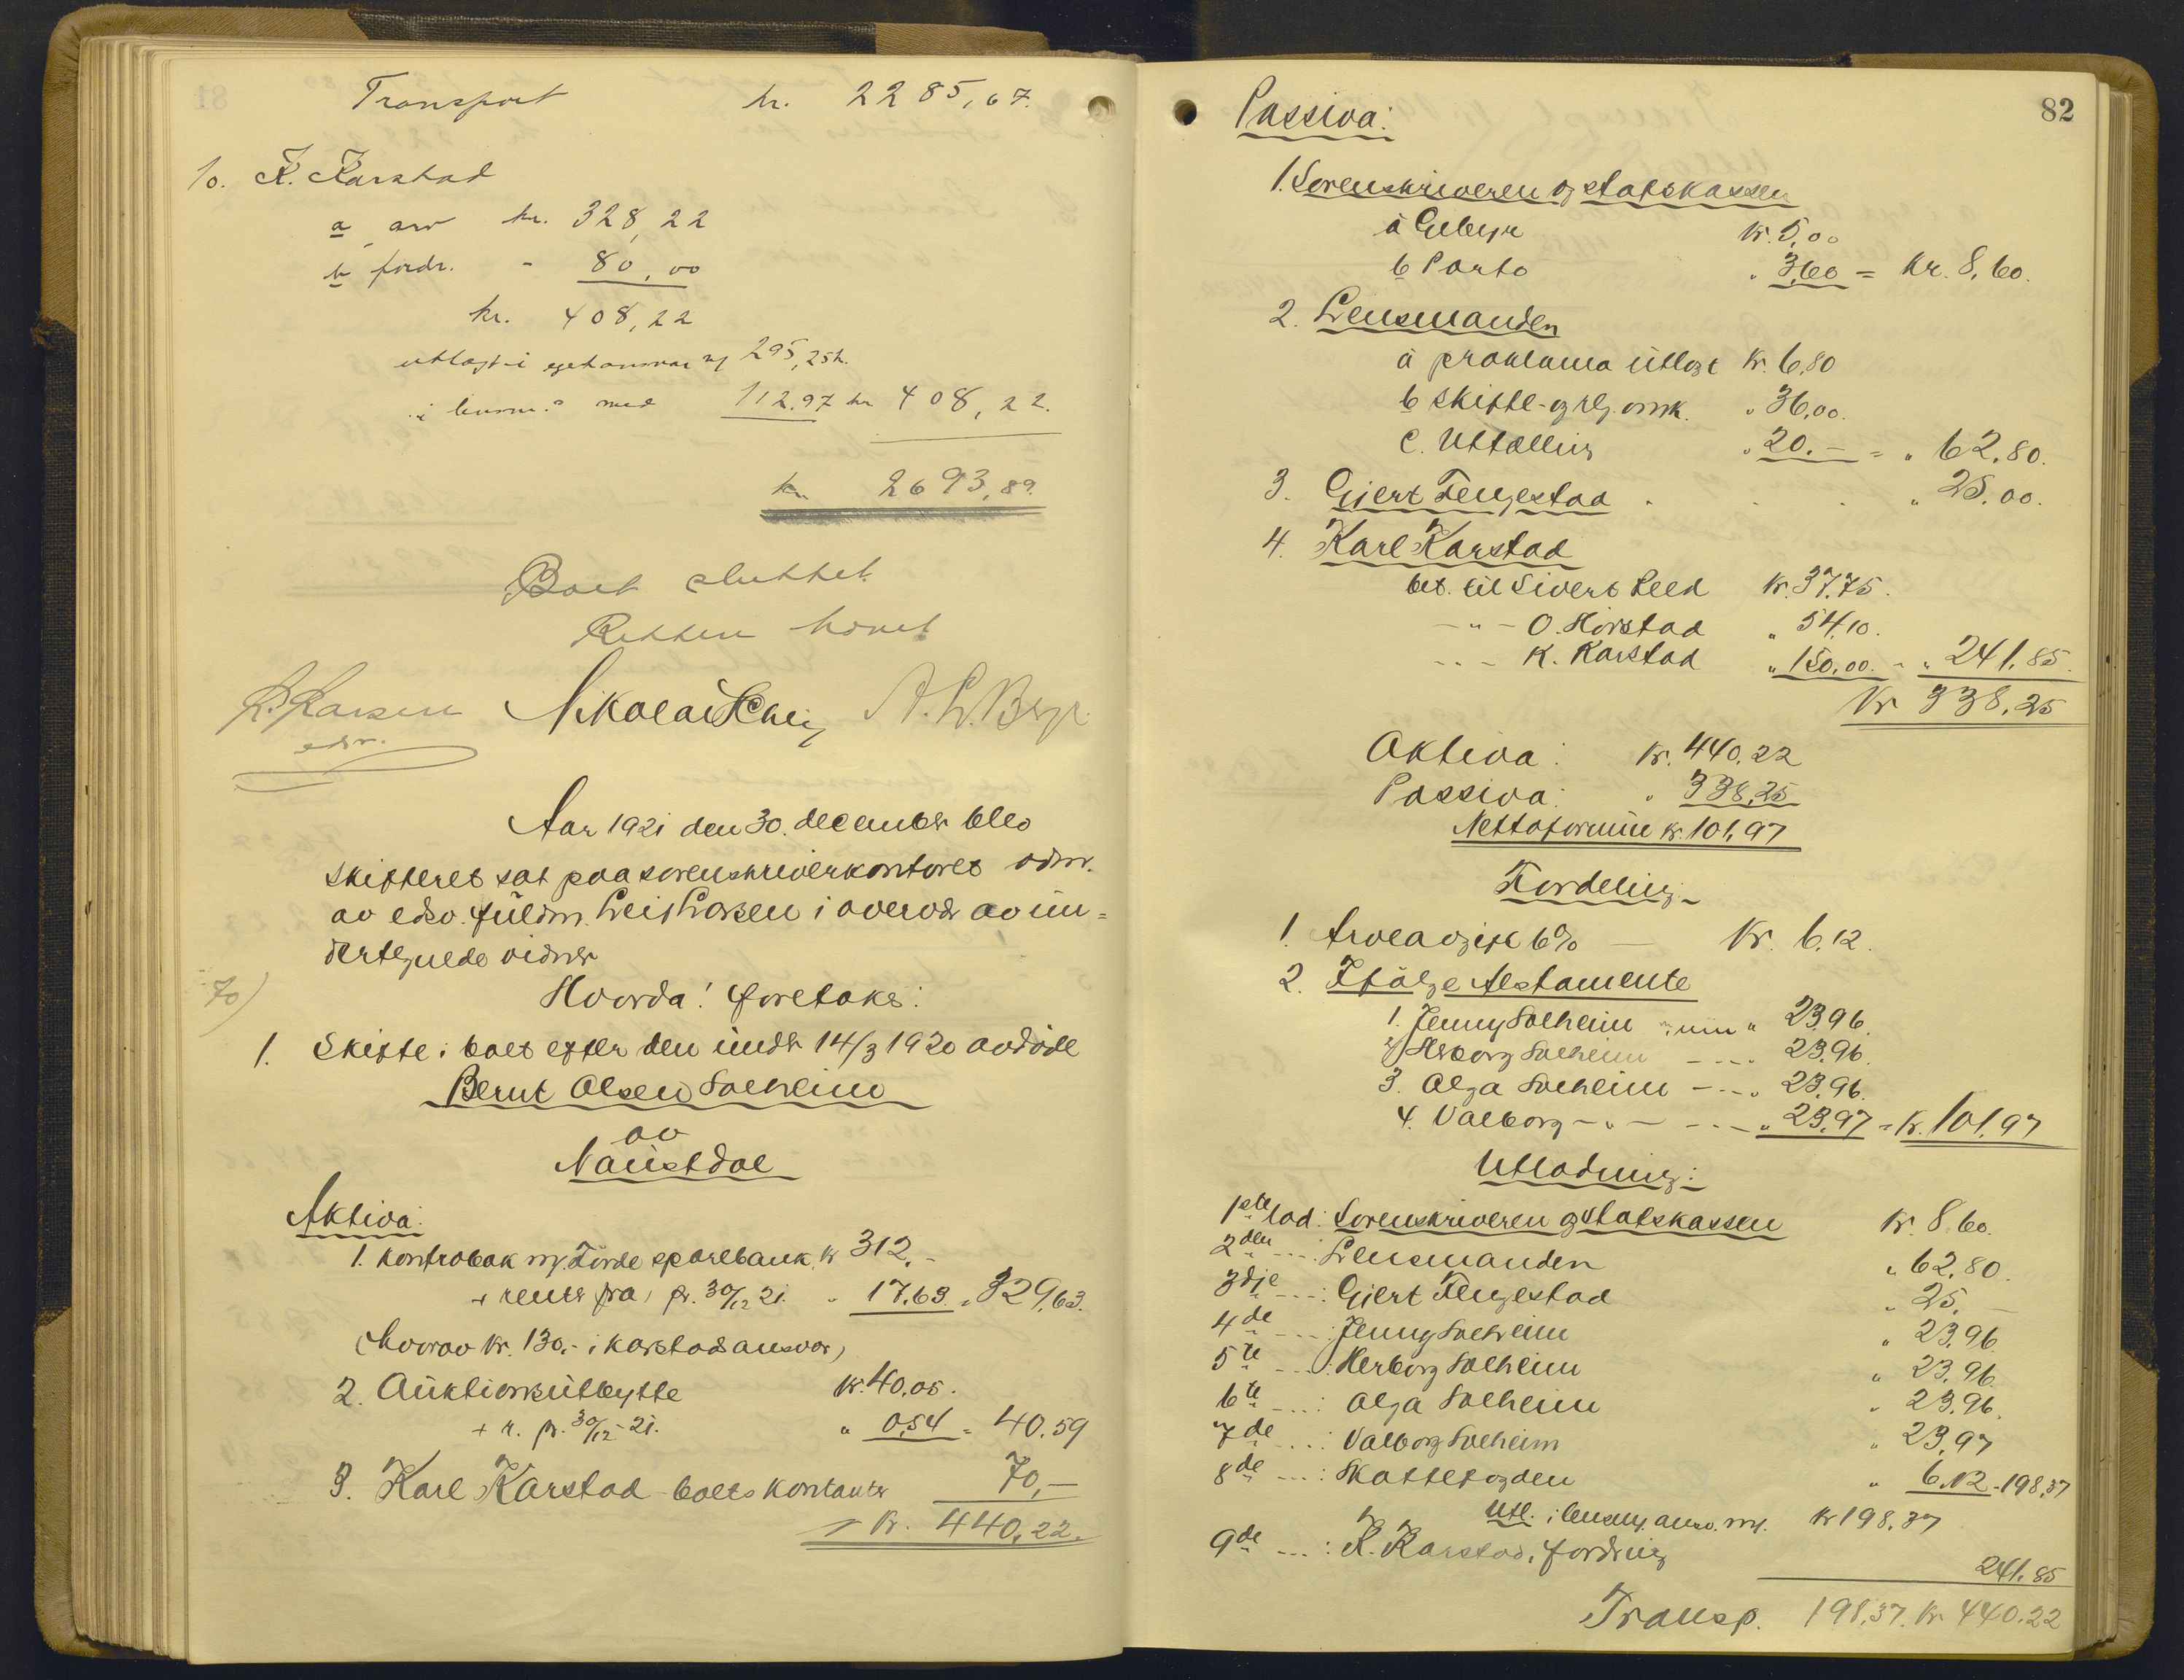 Transport kr. 2285,67.
10. K. Karstad
a arv kr. 328,22
b fordr. - 80,00
kr. 408,22
utlagt i eget ansvar m/ 295,25 kr.
i lensm.s med 112,97 kr 408,22.
kr. 2693,89.
Boet sluttet
Retten hævet
L. Larsen Nikolai A. L. Berge
edsv.
Aar 1921 den 30. december blev
skifteret sat paa sorenskriverkontoret adm.
av edsv. fuldm. Leif Larsen i overvær av un=
dertegnede vidner
70)
Hvorda! foretoks:
1. Skifte i boet efter den under 14/3 1920 avdöde
Bernt Olsen Solheim
av
Naustdal
Aktiva:
1. Kontrabok m/ Förde sparebank kr 312.-
+ renter fra, pr. 30/12 21. " 17.63 = 329,63.
(hvorav kr. 130.- i Karstads ansvar)
2. Auktionsutbytte kr. 40.05.
+ r. pr. 30/12-21. " 0,54 = 40.59
3. Karl Karstad - boets kontanter 70,-
Kr. 440,22.
82
Passiva:
1. Sorenskriveren og statskassen
a Gebyr kr. 5,00
b Porto " 3,60 = kr. 8,60.
2. Lensmanden
a proklama utlagt kr. 6,80
b skifte- og reg. omk. " 36,00.
c. Uttælling " 20.- = " 62,80.
3. Gjert Fengestad " 25.00.
4. Karl Karstad
bet. til Sivert Leed kr. 37.75.
- " - O. Horstad " 54,10.
- " - K. Karstad " 150,00. - " 241.85.
Kr 338,25
Aktiva: kr. 440.22
Passiva: " 338,25
Nettoformue kr. 101,97
Fordeling
1. Arveavgift 6% — kr. 6.12.
2. Ifölge testamente
1. Jenny Solheim " 23,96.
2/ Herborg Solheim - - - " 23,96.
3. Olga Solheim - - - " 23,96.
4. Valborg - " - - - - " 23,97 = kr. 101,97
Utlodning:
1ste lod: Sorenskriveren og statskassen kr. 8.60.
2den - - -: Lensmanden " 62,80.
3dje - - -: Gjert Fengestad " 25,-
4de - - -: Jenny Solheim " 23,96
5te - - -: Herborg Solheim " 23,96
6te - - -: Olga Solheim " 23,96.
7de - - -: Valborg Solheim " 23,97
8de - - -: Skattefogden " 6.12 - 198,37
Utl. i lensm. ansv. m/. kr 198.37
9de - - -: K. Karstad, fordring 241.85
Transp. 198,37. kr 440.22